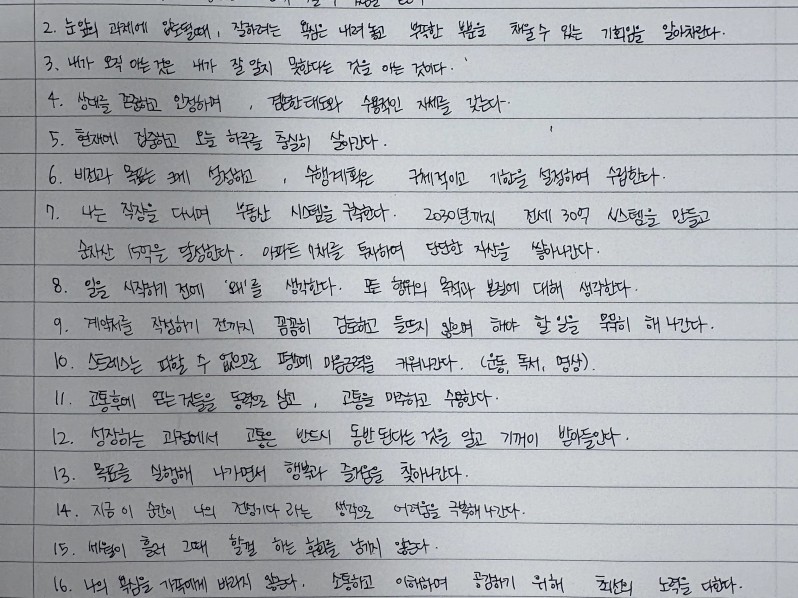 2. 눈앞의 과제에 압도될때, 잘하려는 욕심은 내려놓고 부족한 부분을 채울 수 있는 기회임을 알아차린다.
3. 내가 오직 아는것은 내가 잘 알지 못한다는 것을 아는 것이다.
4. 상대를 존중하고 인정하며, 겸손한 태도와 수용적인 자세를 갖는다.
5. 현재에 집중하고 오늘 하루를 충실히 살아간다.
6. 비전과 목표는 크게 설정하고, 수행계획은 구체적이고 기한을 설정하여 수립한다.
7. 나는 직장을 다니며 부동산 시스템을 구축한다. 2030년까지 전세 30억 시스템을 만들고
순자산 15억을 달성한다. 아파트 1채를 투자하며 단단한 자산을 쌓아나간다.
8. 일을 시작하기 전에 '왜'를 생각한다. 모든 행위의 목적과 본질에 대해 생각한다.
9. 계약서를 작성하기 전까지 꼼꼼히 검토하고 들뜨지 않으며 해야 할 일을 묵묵히 해 나간다.
10. 스트레스는 피할 수 없으므로 평소에 마음근력을 키워나간다. (운동, 독서, 명상).
11. 고통후에 오는 것들을 동력으로 삼고, 고통을 마주하고 수용한다.
12. 성장하는 과정에서 고통은 반드시 동반된다는 것을 알고 기꺼이 받아들인다.
13. 목표를 실행해 나가면서 행복과 즐거움을 찾아나간다.
14. 지금 이 순간이 나의 전성기다 라는 생각으로 어려움을 극복해 나간다.
15. 세월이 흘러 그때 할걸 하는 후회를 남기지 않는다.
16. 나의 욕심을 가족에게 바라지 않는다. 소통하고 이해하며 공감하기 위해 최선의 노력을 다한다.